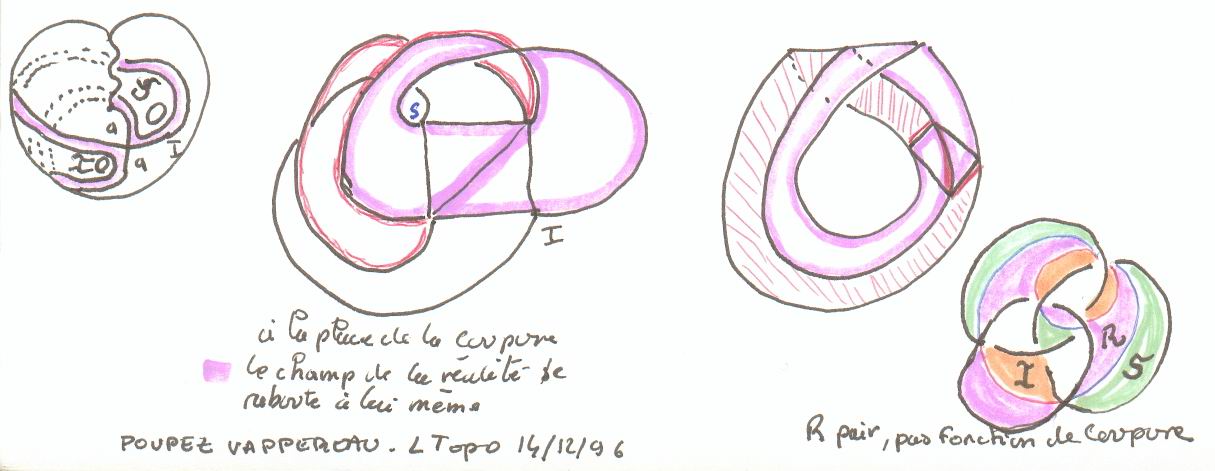 a
a
I
S
I
à la place de la coupure
le champ de la réalité se
raboute à lui même
POUPEZ VAPPEREAU. L TOPO 14/12/96
R
S
I
R pair, pas fonction de coupure